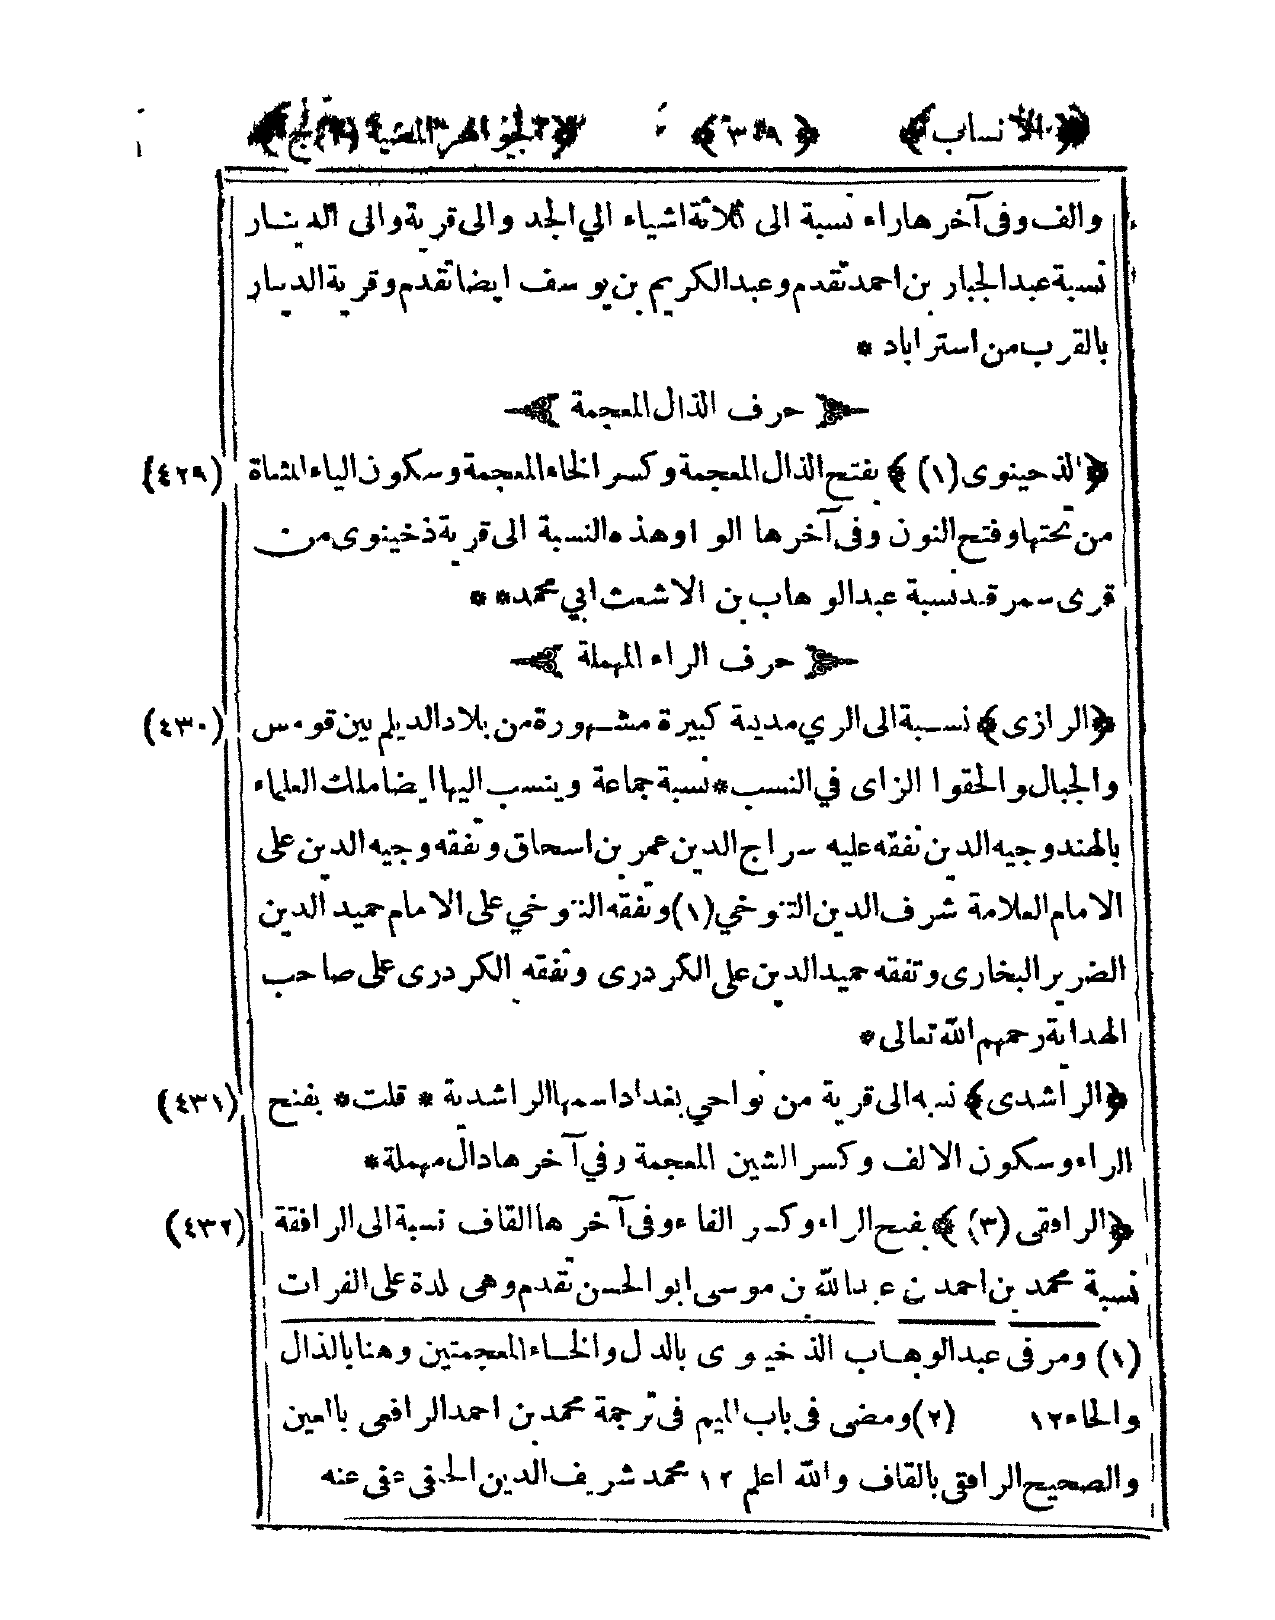 ﴿الانساب﴾ ﴿٣٠٩﴾ ﴿الجواهر المضية (٢) ج﴾
والف وفى آخرها راء نسبة الى ثلاثة اشياء الي الجد والى قرية والى الدينار
نسبة عبد الجبار بن احمد تقدم وعبد الكريم بن يوسف ايضا تقدم وقرية الدينار
بالقرب من استراباد *
حرف الذال المعجمة
﴿الذخينوى (١)﴾ بفتح الذال المعجمة وكسر الخاء المعجمة وسكون الياء المثناة (٤٢٩)
من تحتها وفتح النون وفى آخرها الواو هذه النسبة الى قرية ذخينوى من
قرى سمرقند نسبة عبد الوهاب بن الاشعث ابي محمد * *
حرف الراء المهملة
﴿الرازى﴾ نسبة الى الري مدينة كبيرة مشهورة من بلاد الديلم بين قومس (٤٣٠)
والجبال والحقوا الزاى في النسب * نسبة جماعة وينسب اليها ايضا ملك العلماء
بالهند وجيه الدين تفقه عليه سراج الدين عمر بن اسحاق وتفقه وجيه الدين على
الامام العلامة شرف الدين التنوخي (١) وتفقه التنوخي على الامام حميد الدين
الضرير البخارى وتفقه حميد الدين علي الكردرى وتفقه الكردرى على صاحب
الهداية رحمهم الله تعالى *
﴿الراشدى﴾ نسبه الى قرية من نواحي بغداد اسمها الراشدية * قلت * بفتح (٤٣١)
الراء وسكون الالف وكسر الشين المعجمة وفي آخرها دال مهملة *
﴿الرافقى (٣)﴾ بفتح الراء وكسر الفاء وفى آخرها القاف نسبة الى الرافقة (٤٣٢)
نسبة محمد بن احمد بن عبد الله بن موسى ابو الحسن تقدم وهى بلدة على الفرات
(١) ومر فى عبد الوهاب الذخينوى بالدال والخاء المعجمتين وهنا بالذال
والخاء ١٢ (٢) ومضى فى باب الميم فى ترجمة محمد بن احمد الرافعى بالعين
والصحيح الرافقى بالقاف والله اعلم ١٢ محمد شريف الدين الحنفى عفى عنه